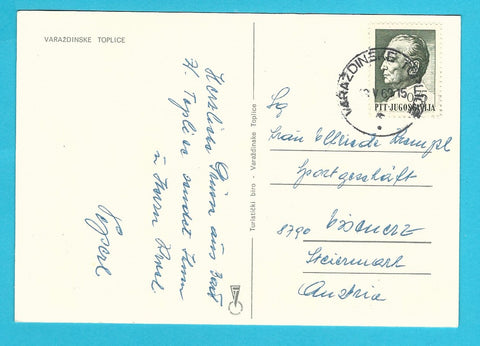 VARAŽDINSKE TOPLICE
Herzliche Grüsse aus Bad
V. Toplice sendet Ihnen
u. Herrn
Turistički biro - Varaždinske Toplice
VARAŽDINSKE TOPLICE
V 69 15
PTT JUGOSLAVIJA
Frau Elfriede
Sportgeschäft
8790 Eisenerz
Steiermark
Austria